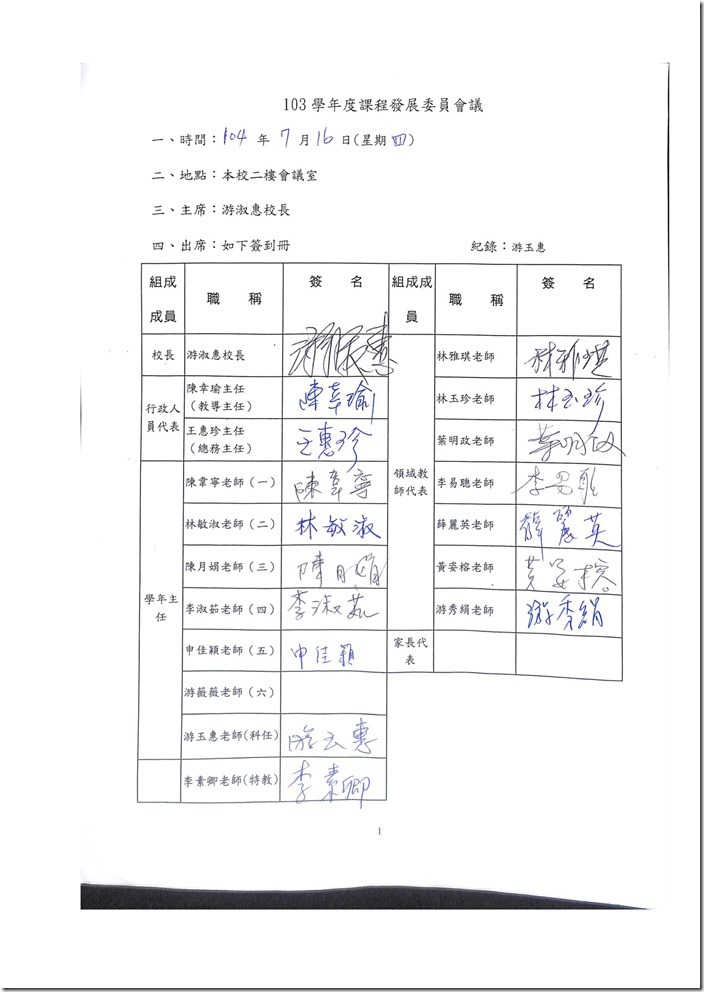 103 學年度課程發展委員會議
一、時間：104 年 7 月 16 日(星期 四)
二、地點：本校二樓會議室
三、主席：游淑惠校長
四、出席：如下簽到冊 紀錄：游玉惠
組成成員 職 稱 簽 名 組成成員 職 稱 簽 名
校長 游淑惠校長 游淑惠
行政人員代表 陳幸瑜主任（教導主任） 陳幸瑜
王惠珍主任（總務主任） 王惠珍
學年主任 陳韋寧老師（一） 陳韋寧
林敏淑老師（二） 林敏淑
陳月娟老師（三） 陳月娟
李淑茹老師（四） 李淑茹
申佳穎老師（五） 申佳穎
游薇薇老師（六）
游玉惠老師(科任) 游玉惠
李素卿老師(特教) 李素卿
領域教師代表 林雅琪老師 林雅琪
林玉珍老師 林玉珍
葉明政老師 葉明政
李易聰老師 李易聰
薛麗英老師 薛麗英
黃姿榕老師 黃姿榕
游秀絹老師 游秀絹
家長代表
1